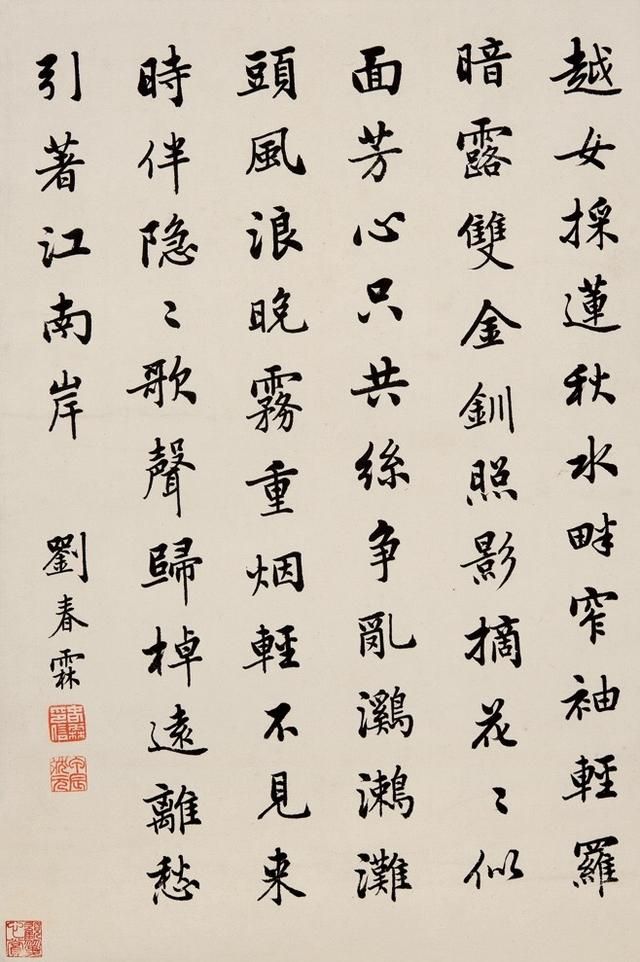 越女採蓮秋水畔窄袖輕羅
暗露雙金釧照影摘花〻似
面芳心只共絲争亂鸂鷘灘
頭風浪晚霧重烟輕不見来
時伴隐〻歌聲歸棹遠離愁
引著江南岸
劉春霖